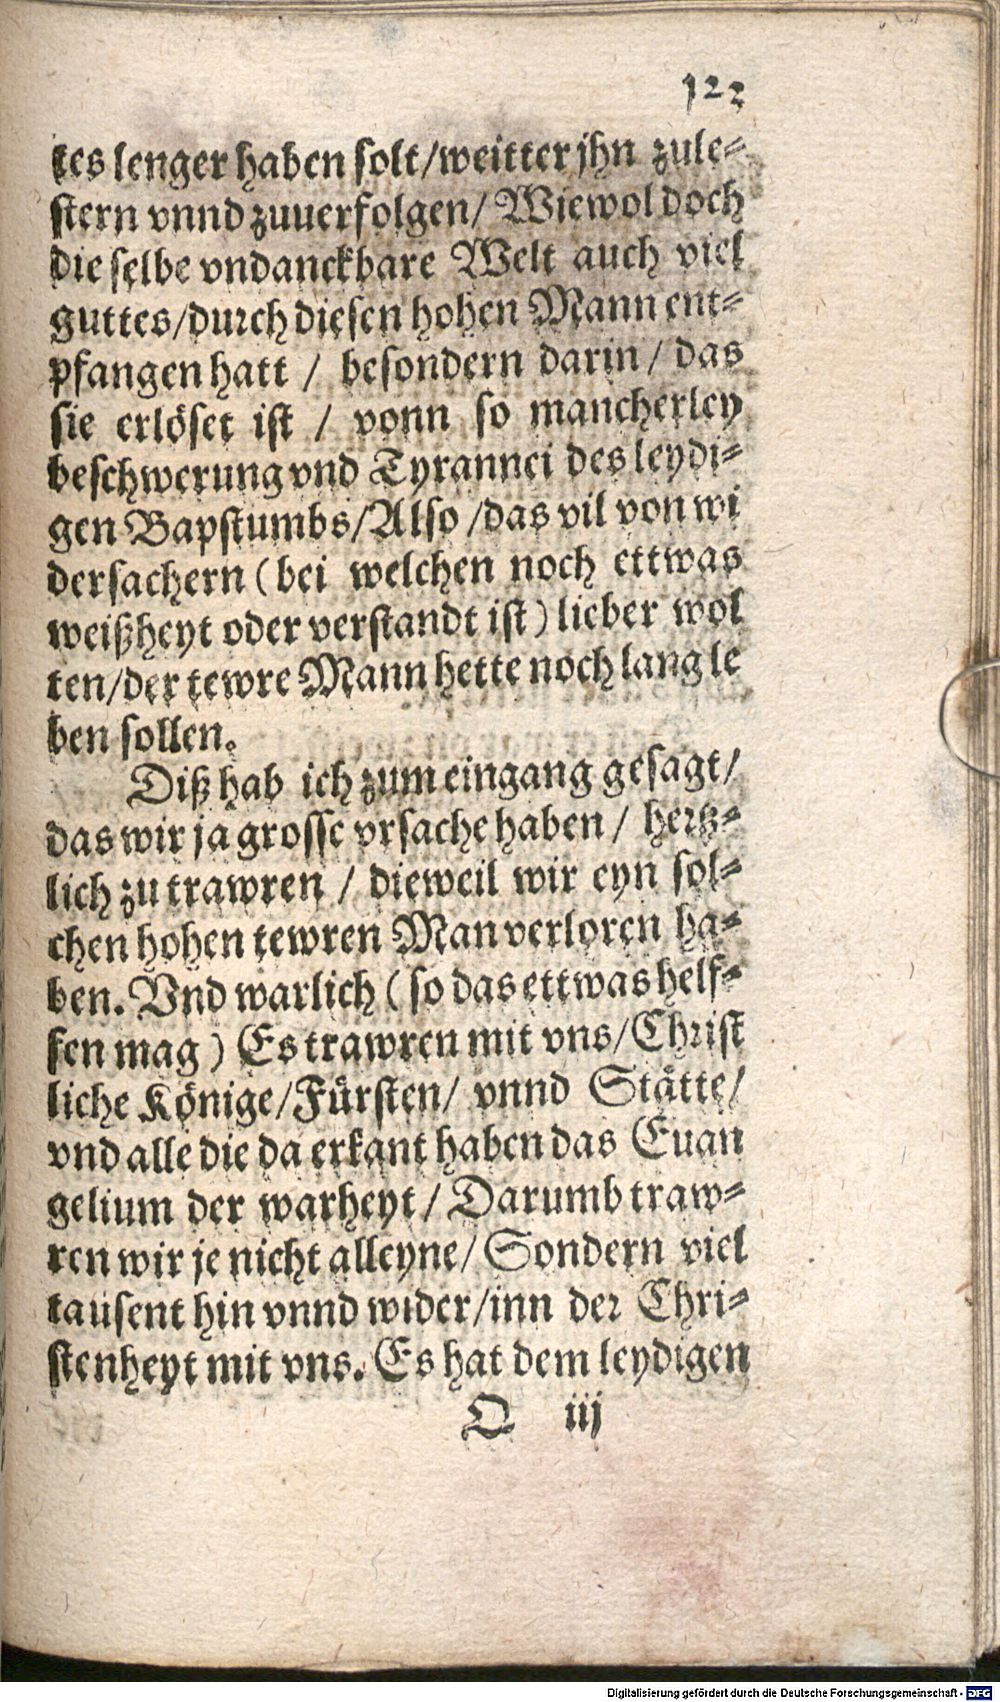 122
tes lenger haben solt/weitter jhn zule-
stern vnnd zuuerfolgen/ Wiewol doch
die selbe vndanckbare Welt auch viel
guttes/durch diesen hohen Mann ent-
pfangen hatt / besondern darin / das
sie erlöset ist / vonn so mancherley
beschwerung vnd Tyrannei des leydi-
gen Bapstumbs/Also /das vil von wi
dersachern (bei welchen noch ettwas
weißheyt oder verstandt ist) lieber wol
ten/der tewre Mann hette noch lang le
ben sollen.
Diß hab ich zum eingang gesagt/
das wir ja grosse vrsache haben / hertz-
lich zu trawren / dieweil wir eyn sol-
chen hohen tewren Man verloren ha-
ben. Vnd warlich ( so das ettwas helf-
fen mag ) Es trawren mit vns/Christ
liche Könige/Fürsten/ vnnd Stätte/
vnd alle die da erkant haben das Euan
gelium der warheyt / Darumb traw-
ren wir je nicht alleyne/ Sondern viel
tausent hin vnnd wider/inn der Chri-
stenheyt mit vns. Es hat dem leydigen
Q iij
Digitalisierung gefördert durch die Deutsche Forschungsgemeinschaft - DFG